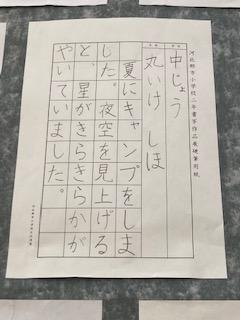 河北郡市小学校二年書写作品展硬筆用紙
中じょう
丸いけ しほ
夏にキャンプをしま
した。夜空を見上げる
と、星がきらきらかが
やいていました。